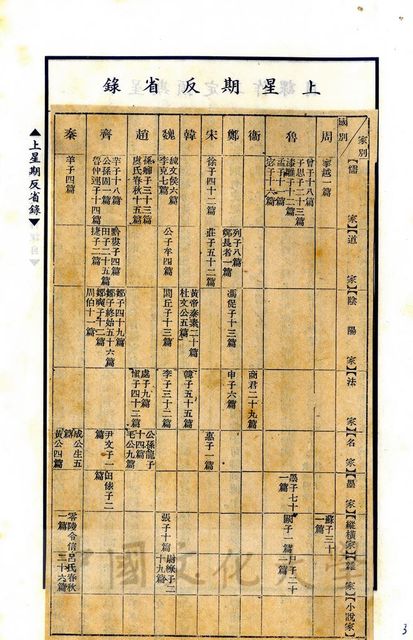 上星期反省錄
▲上星期反省錄▲
國別
家別
【儒家】
【道家】
【陰陽家】
【法家】
【名家】
【墨家】
【縱橫家】
【雜家】
【小說家】
周
家越一篇
蘇子三十一篇
魯
曾子十八篇
子思二十三篇
漆雕子十二篇
孟子十一篇
宓子十六篇
墨子七十一篇
尸子二十篇
闕子一篇
衞
商君二十九篇
鄭
列子八篇
鄭長者一篇
馮促十三篇
申子六篇
宋
徐子四十二篇
莊子五十二篇
惠子一篇
韓
黃帝泰素二十篇
杜文公五篇
韓子五十五篇
魏
魏文侯六篇
李克七篇
公子牟四篇
閭丘子十三篇
李子三十二篇
張子十篇
尉繚子二十九篇
趙
孫卿子三十三篇
虞氏春秋十五篇
處子九篇
慎子四十二篇
公孫龍子十四篇
毛公九篇
齊
芊子十八篇
公孫固一篇
魯仲連子十四篇
黔婁子四篇
田子二十五篇
捷子二篇
鄒子四十九篇
鄒子終始五十六篇
鄒奭子十二篇
周伯十一篇
尹文子一篇
田俅子二篇
秦
羊子四篇
成公生五篇
黃公四篇
零陵令信一篇
呂氏春秋二十六篇
中國文化大學
3